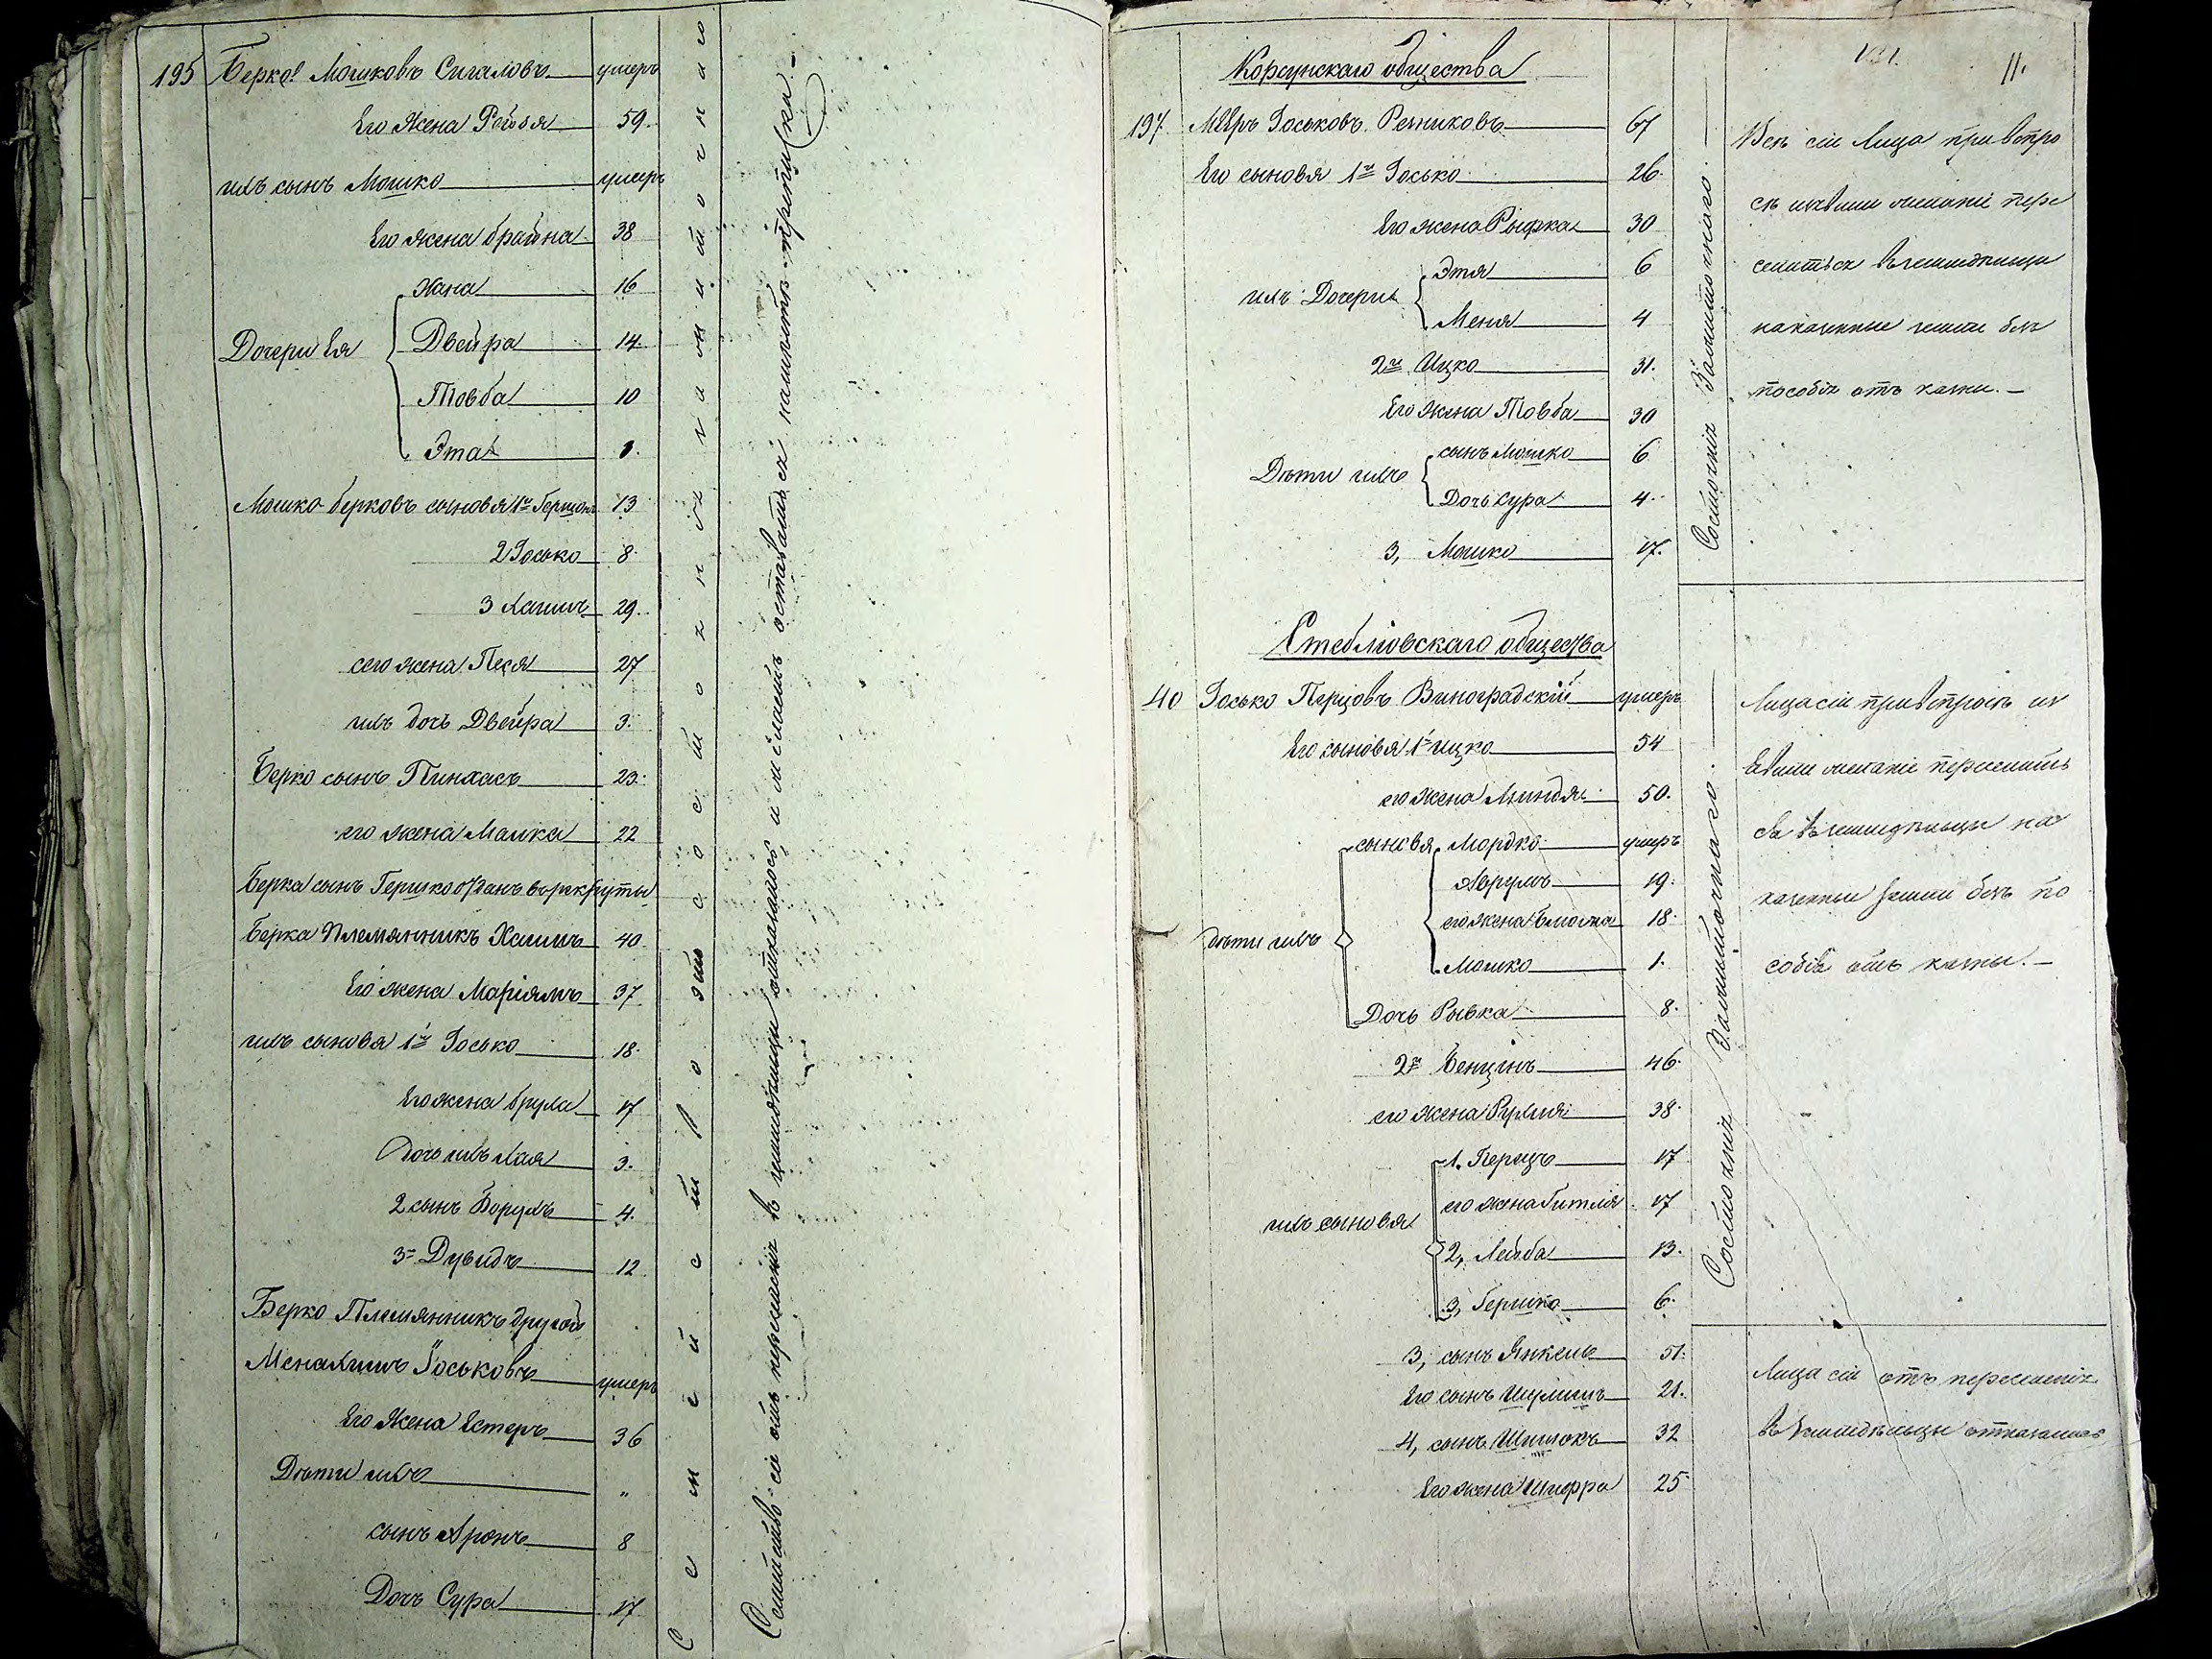 195 Берко Мошковъ Сигаловъ умеръ
Его жена Рейзя 59.
ихъ сынъ Мошко умеръ
Его жена брайна 38
Хана 16
Дочери Ея Двейра 14
Товба 10
Эта 1.
Мошко берковъ сыновья 1й Гершонъ 13
2 Іосько 8
3 Хаимъ 29.
сего жена Песя 27
ихъ дочь Двейра 3.
Берко сынъ Пинхасъ 23.
его жена Малка 22
Берка сынъ Гершко отданъ в рекруты
Берка Племянникъ Хаимъ 40
Его жена Маріямъ 37
ихъ сыновя 1й Іосько 18.
Его жена брула 17
Дочь ихъ Хая 3.
2 сынъ Борухъ 4.
3й Дувидъ 12
Берко Племянникъ другой
Менахимъ Іоськовъ умеръ
Его Жена Естеръ 36
Дѣти ихъ "
сынъ Аронъ 8
Дочь Сура 17
Семейство сіе отъ переселенія въ земледѣльцы отказалось и желаетъ оставаться
131. 11.
Корсунскаго общества
197 Мееръ Іоськовъ Резниковъ 67
Его сыновя 1й Іосько 26.
Его жена Рыфка 30
Этя 6
ихъ Дочери
Меня 4
2й Ицко 31.
Его жена Товба 30
сынъ Мошко 6
Дѣти ихъ
Дочь Сура 4.
3, Мошко 17.
Состоянія Зажиточнаго.
Всѣ сіи Лица при вопро
сѣ изъявили желаніе пере
селиться въ земледѣльцы
на казенные земли безъ
пособія отъ казны.
Стеблювскаго общества
40 Іосько Перцовъ Виноградскій умеръ
Его сыновя 1й ицко 54
его жена 50.
сыновя Мордко умеръ
Аврумъ 19.
его жена 18.
дѣти ихъ
Мошко 1.
Дочь Рывка 8.
2й Бенцинъ 46.
его жена Рухля 38.
1. Перецъ 17
его жена Гитля 17
ихъ сыновя
2, Лейба 13.
3, Гершко 6.
3, сынъ Янкель 51.
Его сынъ Шулимъ 21.
4, сынъ Шмилокъ 32
Его жена Шифра 25
Состоянія Зажиточнаго.
Лица сіи при вопросѣ изъ
явили желаніе переселить
ся въ земледѣльцы на
казенныи земли безъ по
собія отъ казны.
Лица сіи отъ переселенія
въ земледѣльцы отказались